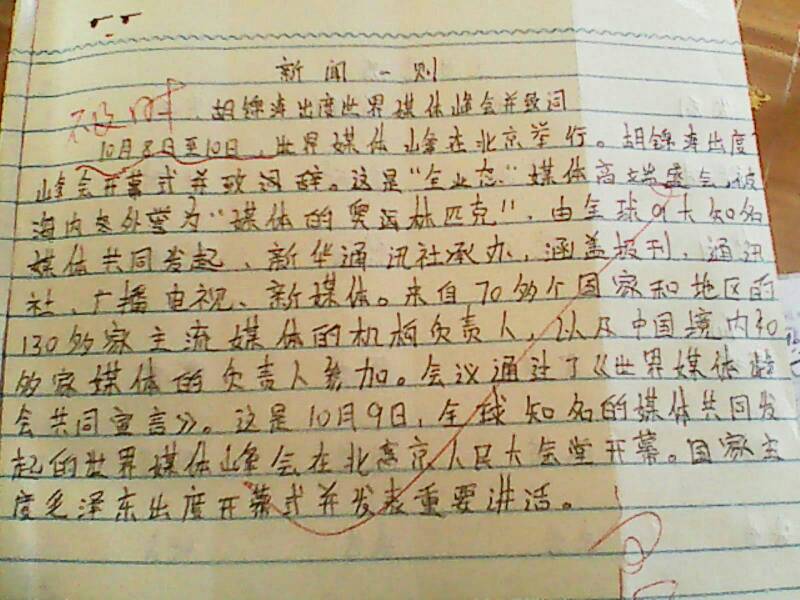 新闻一则
胡锦涛出度世界媒体峰会并致词
10月8日至10日，世界媒体峰在北京举行。胡锦涛出度
峰会开幕式并致词辞。这是“全业态”媒体高端盛会，被
海内外誉为“媒体的奥运林匹克”，由全球9大知名
媒体共同发起、新华通讯社承办，涵盖报刊、通讯
社、广播电视、新媒体。来自70多个国家和地区的
130多家主流媒体的机构负责人，以及中国境内40
多家媒体的负责人参加。会议通过了《世界媒体峰
会共同宣言》。这是10月9日，全球知名的媒体共同发
起的世界媒体峰会在北京人民大会堂开幕。国家主
度毛泽东出度开幕式并发表重要讲话。